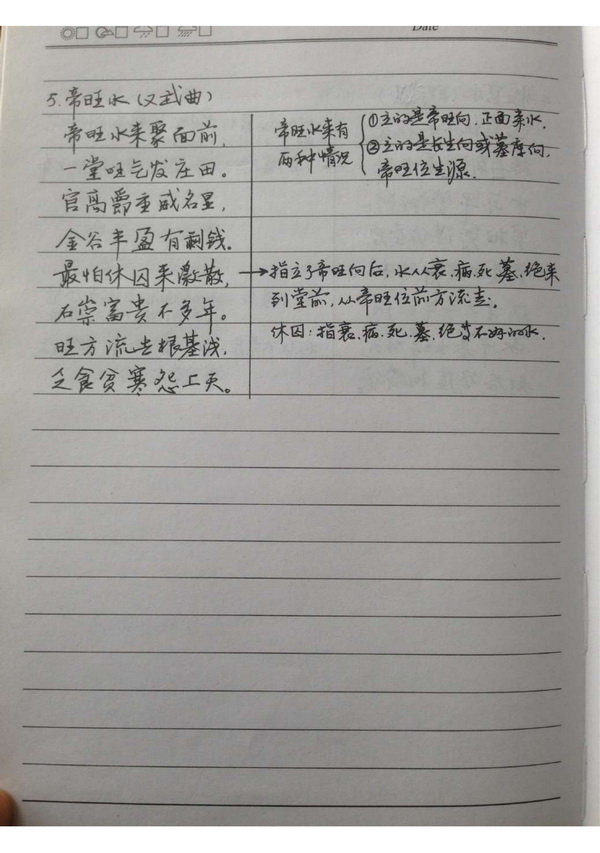 Date
5.帝旺水(又武曲)
帝旺水来聚面前,
一堂旺气发庄田。
官高爵重威名显,
金谷丰盈有剩钱。
最怕休囚来激散,
石崇富贵不多年。
旺方流去根基浅,
乏食贫寒怨上天。
帝旺水来有
两种情况
①立的是帝旺向,正面来水.
②立的是长生向或墓库向,
帝旺位生源.
→指立了帝旺向后,水从衰、病、死、墓、绝来
到堂前,从帝旺位前方流走.
休囚:指衰、病、死、墓、绝等不好的水.